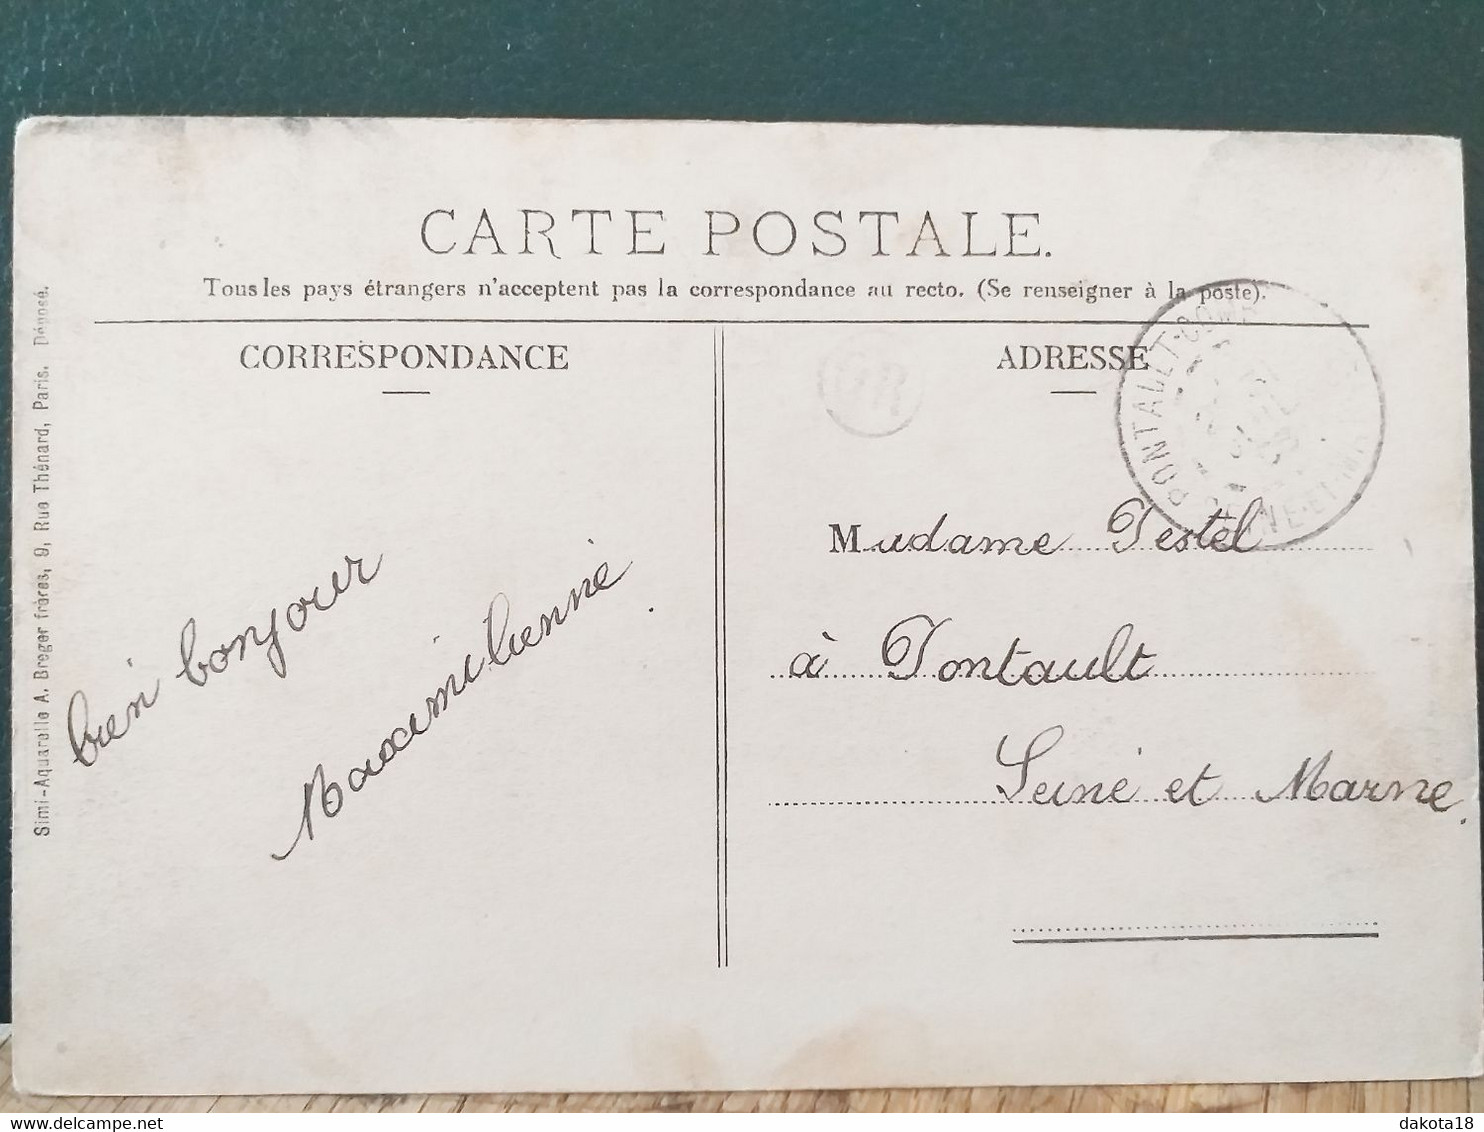 CARTE POSTALE.
Tous les pays étrangers n'acceptent pas la correspondance au recto. (Se renseigner à la poste).
CORRESPONDANCE
bien bonjour
Maximilienne.
Simi-Aquarelle A. Breger frères, 9, Rue Thénard, Paris. Déposé.
OR
ADRESSE
PONTAULT-COMB
SEINE-ET-M
Madame Testel
à Pontault
Seine et Marne.
delcampe.net
dakota18